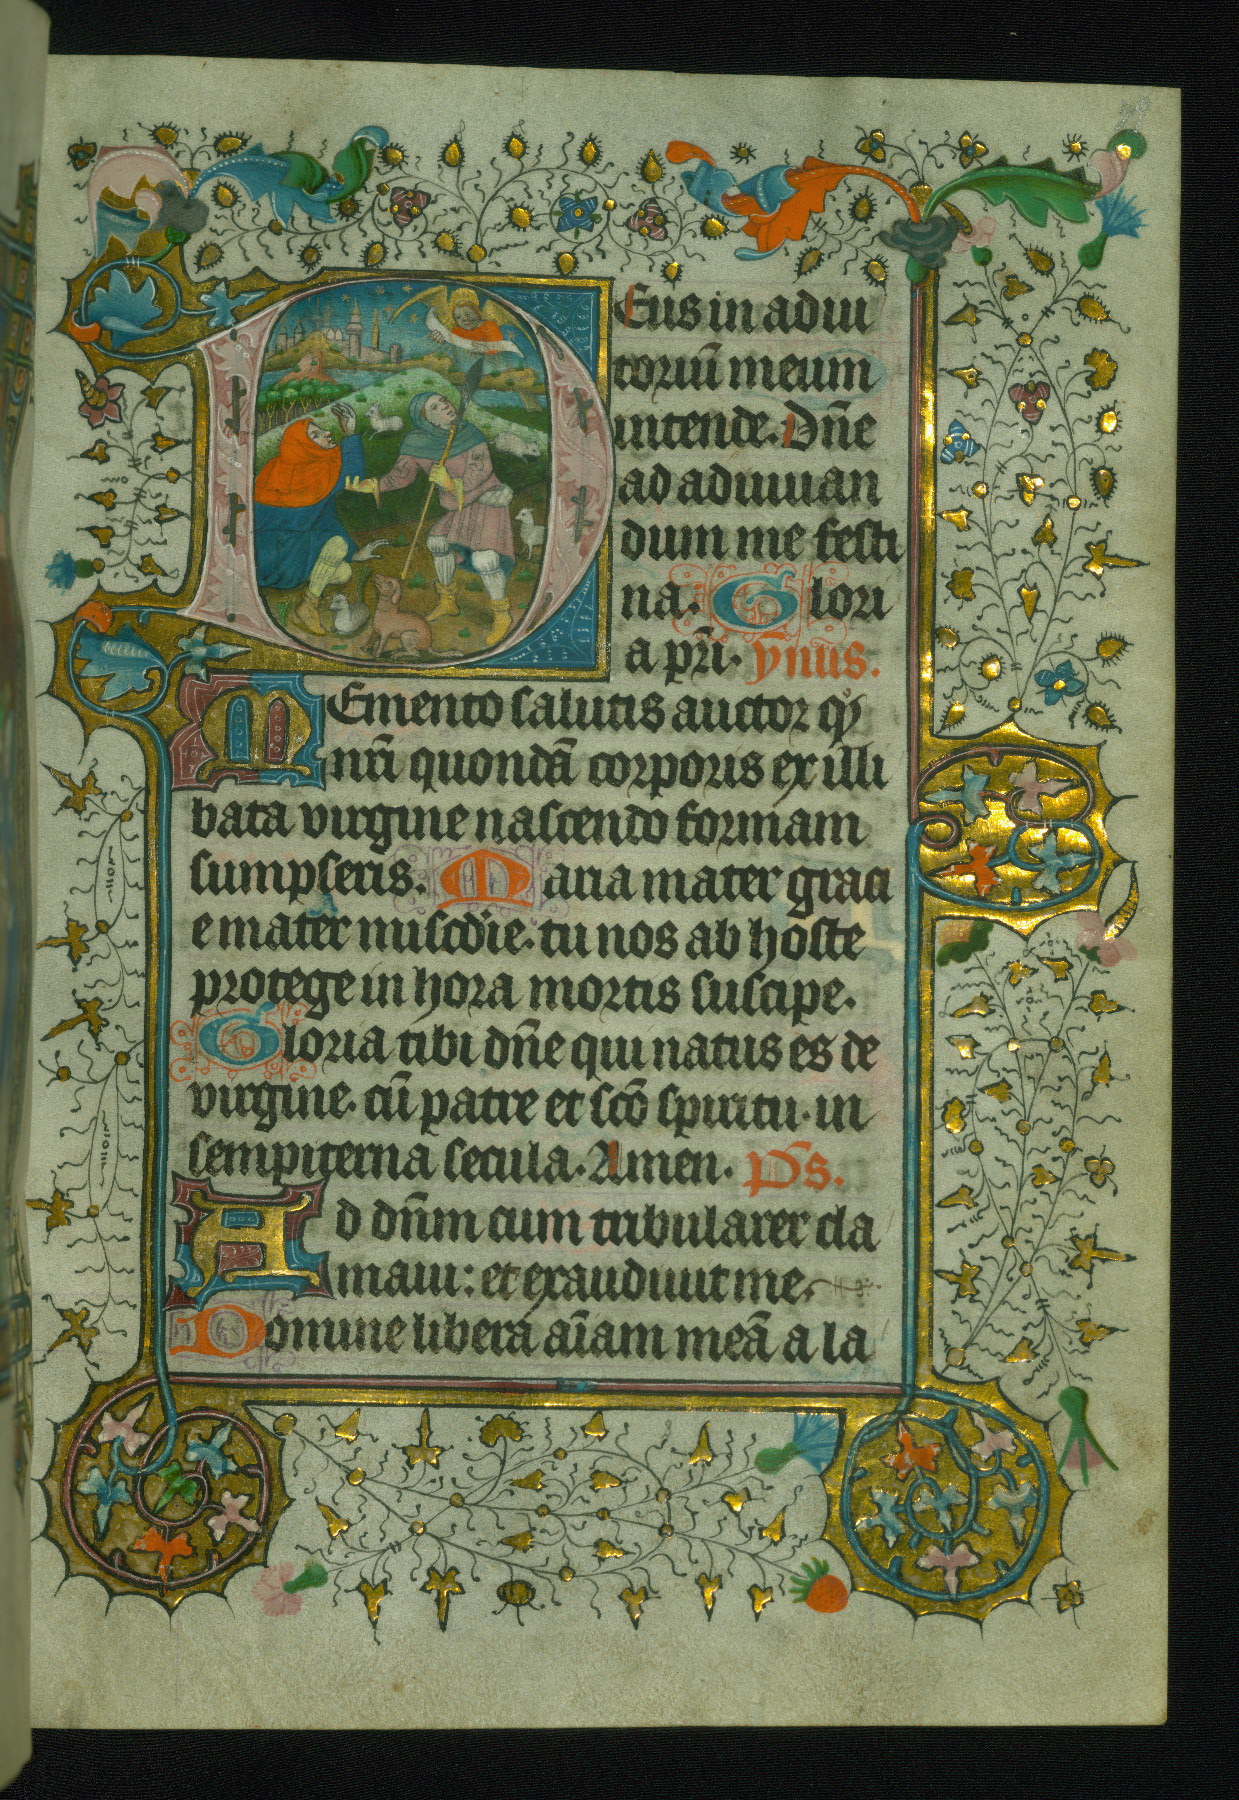 Deus in adiu
toriū meum
intende. Dn̄e
ad adiuuan
dum me festi
na. Glori
a pr̄i. ӯmnus.
Memento salutis auctor qͦ
nr̄i quondā corporis ex illi
bata virgine nascendo formam
sumpseris. Maria mater graci
e mater mis̄cdie. tu nos ab hoste
protege in hora mortis suscipe.
Gloria tibi dn̄e qui natus es de
virgine. cū patre et scō spiritu. in
sempiterna secula. Amen. p̄s.
Ad dn̄m cum tribularer cla
maui: et exaudiuit me.
Domine libera aīam meā a la